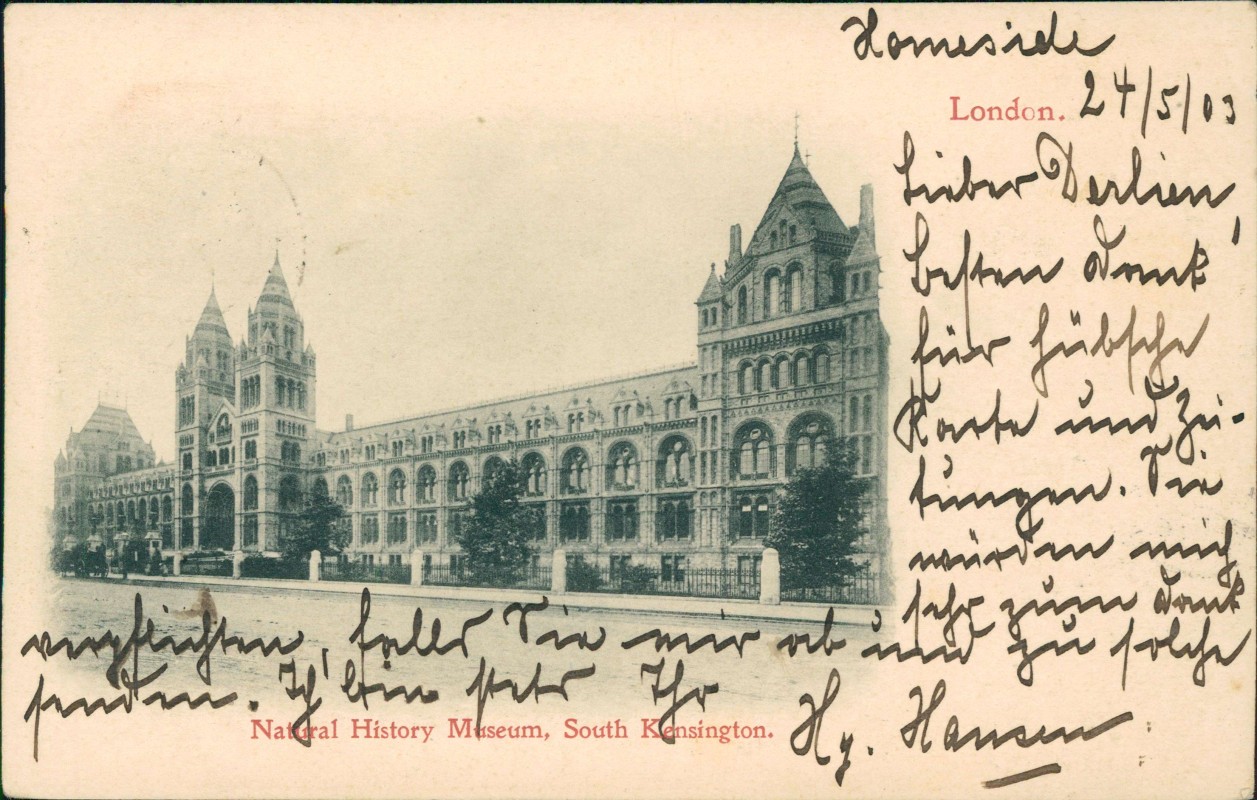 Homeside
London. 24/5/03
Lieber Derlien,
besten Dank
für hübsche
Karte und Zei-
tungen. Sie
würden mich
sehr zum Dank
verpflichten, falls Sie mir ab und zu solche
senden. Ich bin stets Ihr Hy. Hansen
Natural History Museum, South Kensington.